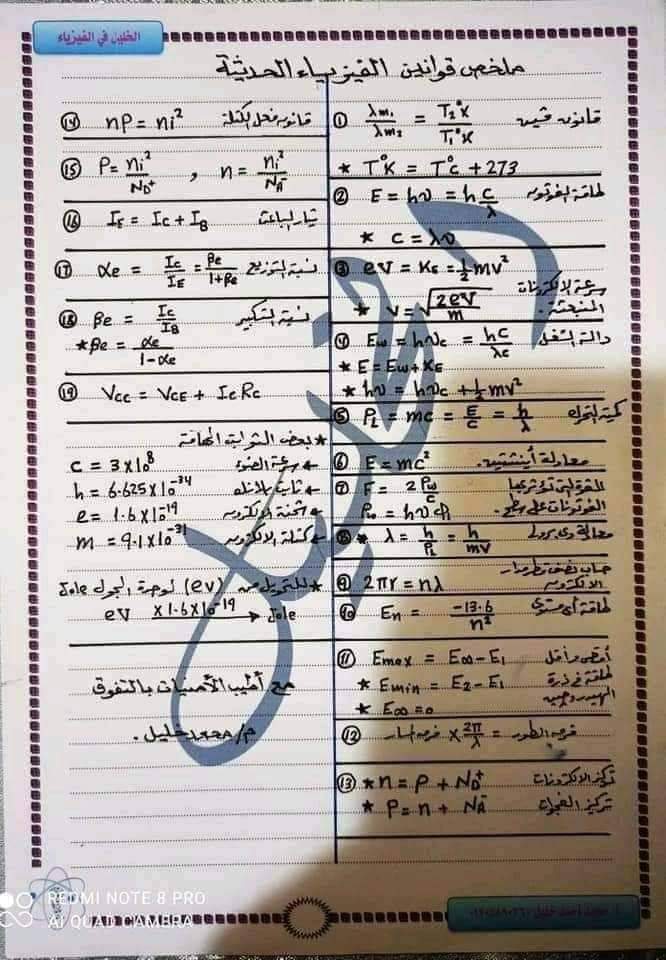 الخليل في الفيزياء
ملخص قوانين الفيزياء الحديثة
① قانون فين λm₁/λm₂ = T₂°K/T₁°K
* T°K = T°C + 273
② طاقة الفوتون E = hν = h C/λ
* C = λν
③ eV = KE = ½mv²
سرعة الإلكترونات المنبعثة * V = √(2eV/m)
④ دالة الشغل Ew = hνc = hC/λc
* E = Ew + KE
* hν = hνc + ½mv²
⑤ كمية التحرك PL = mc = E/C = h/λ
⑥ معادلة أينشتين E = mc²
⑦ القوة التي تؤثر بها F = 2Pw/C
الفوتونات على سطح Pw = hνφ
⑧ معادلة دى برولى * λ = h/PL = h/mv
⑨ حساب نصف قطر مدار الإلكترون 2πr = nλ
⑩ طاقة أى مستوى En = -13.6/n²
⑪ أقصى وأقل Emax = E∞ - E1
طاقة في ذرة * Emin = E2 - E1
الهيدروجين * E∞ = 0
⑫ فرق الطور = 2π/λ × فرق المسار
⑬ تركيز الإلكترونات * n = P + ND⁺
تركيز الفجوات * P = n + NA⁻
⑭ قانون فعل الكتلة nP = ni²
⑮ P = ni²/ND⁺ , n = ni²/NA⁻
⑯ تيار الباعث IE = IC + IB
⑰ نسبة التوزيع αe = IC/IE = βe/1+βe
⑱ نسبة التكبير βe = IC/IB
* βe = αe/1-αe
⑲ VCC = VCE + ICRC
* بعض الثوابت الهامة
C = 3×10⁸ ← سرعة الضوء
h = 6.625×10⁻³⁴ ← ثابت بلانك
e = 1.6×10⁻¹⁹ ← شحنة الإلكترون
m = 9.1×10⁻³¹ ← كتلة الإلكترون
* للتحويل من (ev) لوحدة الجول Jole
eV ×1.6×10⁻¹⁹ → Jole
مع أطيب الأمنيات بالتفوق
م/ خليل.
الخليل
REDMI NOTE 8 PRO
AI QUAD CAMERA